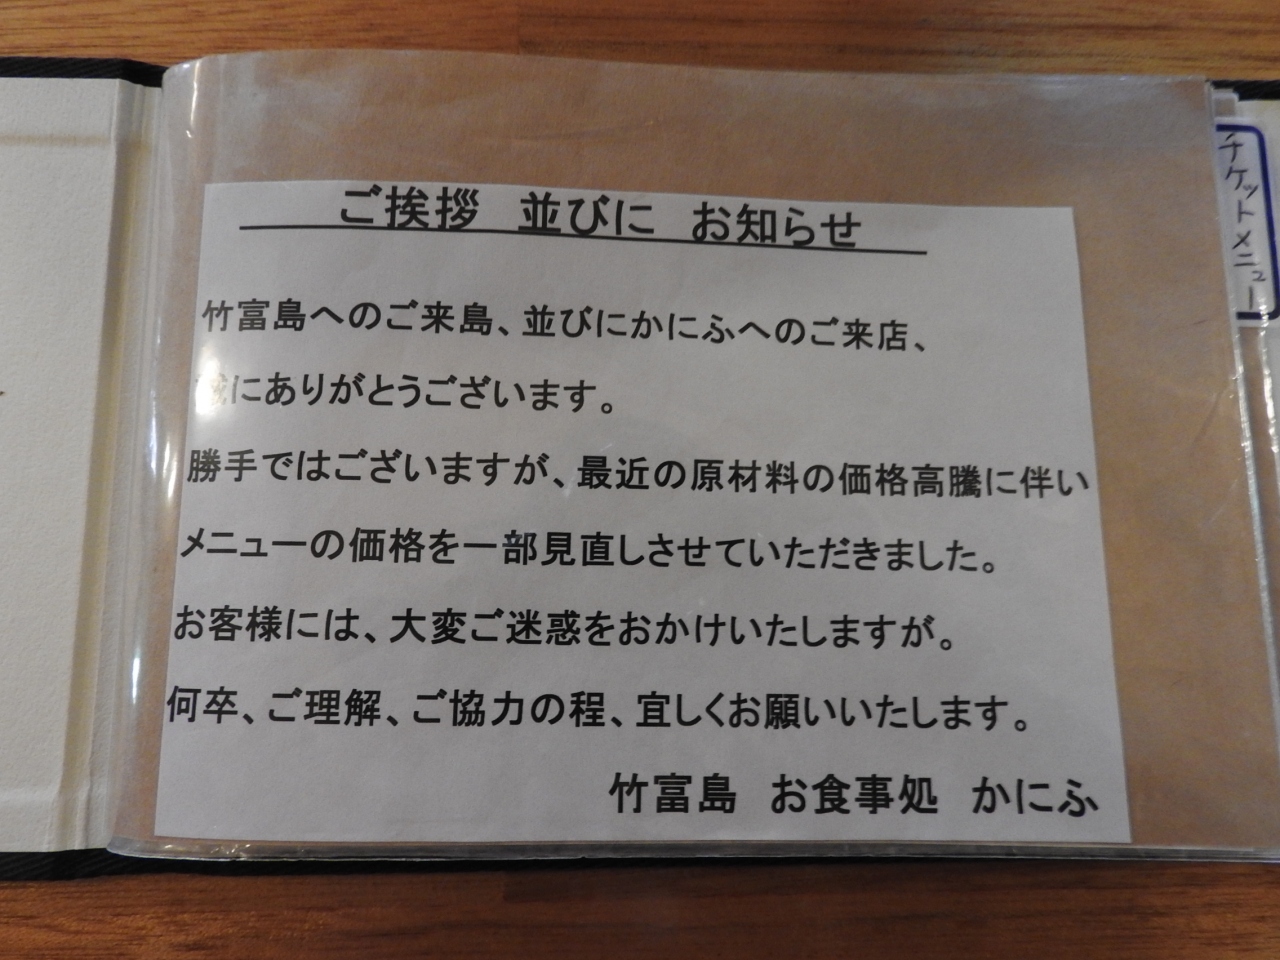 ご挨拶 並びに お知らせ
竹富島へのご来島、並びにかにふへのご来店、
誠にありがとうございます。
勝手ではございますが、最近の原材料の価格高騰に伴い
メニューの価格を一部見直しさせていただきました。
お客様には、大変ご迷惑をおかけいたしますが。
何卒、ご理解、ご協力の程、宜しくお願いいたします。
竹富島 お食事処 かにふ
チケットメニュー